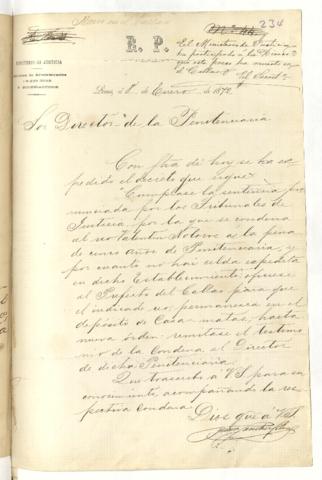 234
R. P.
El Ministerio de Justicia
ha participado a la
que este preso ha muerto en
el Callao
MINISTERIO DE JUSTICIA
Lima, á 8 de Enero de 1872
Sor Director de la Penitenciaria
Con fha de hoy se ha es-
pedido el decreto que sigue
"Cumplase la sentencia pro
nunciada por los Tribunales de
Justicia, por la que se condena
al reo Valentin a la pena
de cinco años de Penitenciaria, y
por cuanto no hai celda espedita
en dicho Establecimiento; oficiese
al Prefecto del Callao para que
el indicado reo permanesca en el
depósito de Casas-matas, hasta
nueva órden: remitase el testimo
nio de la Condena al Director
de dicha Penitenciaria.
Que trascribo a VS para su
conocimiento, acompañando la res-
pectiva condena.
Dios gue a VS